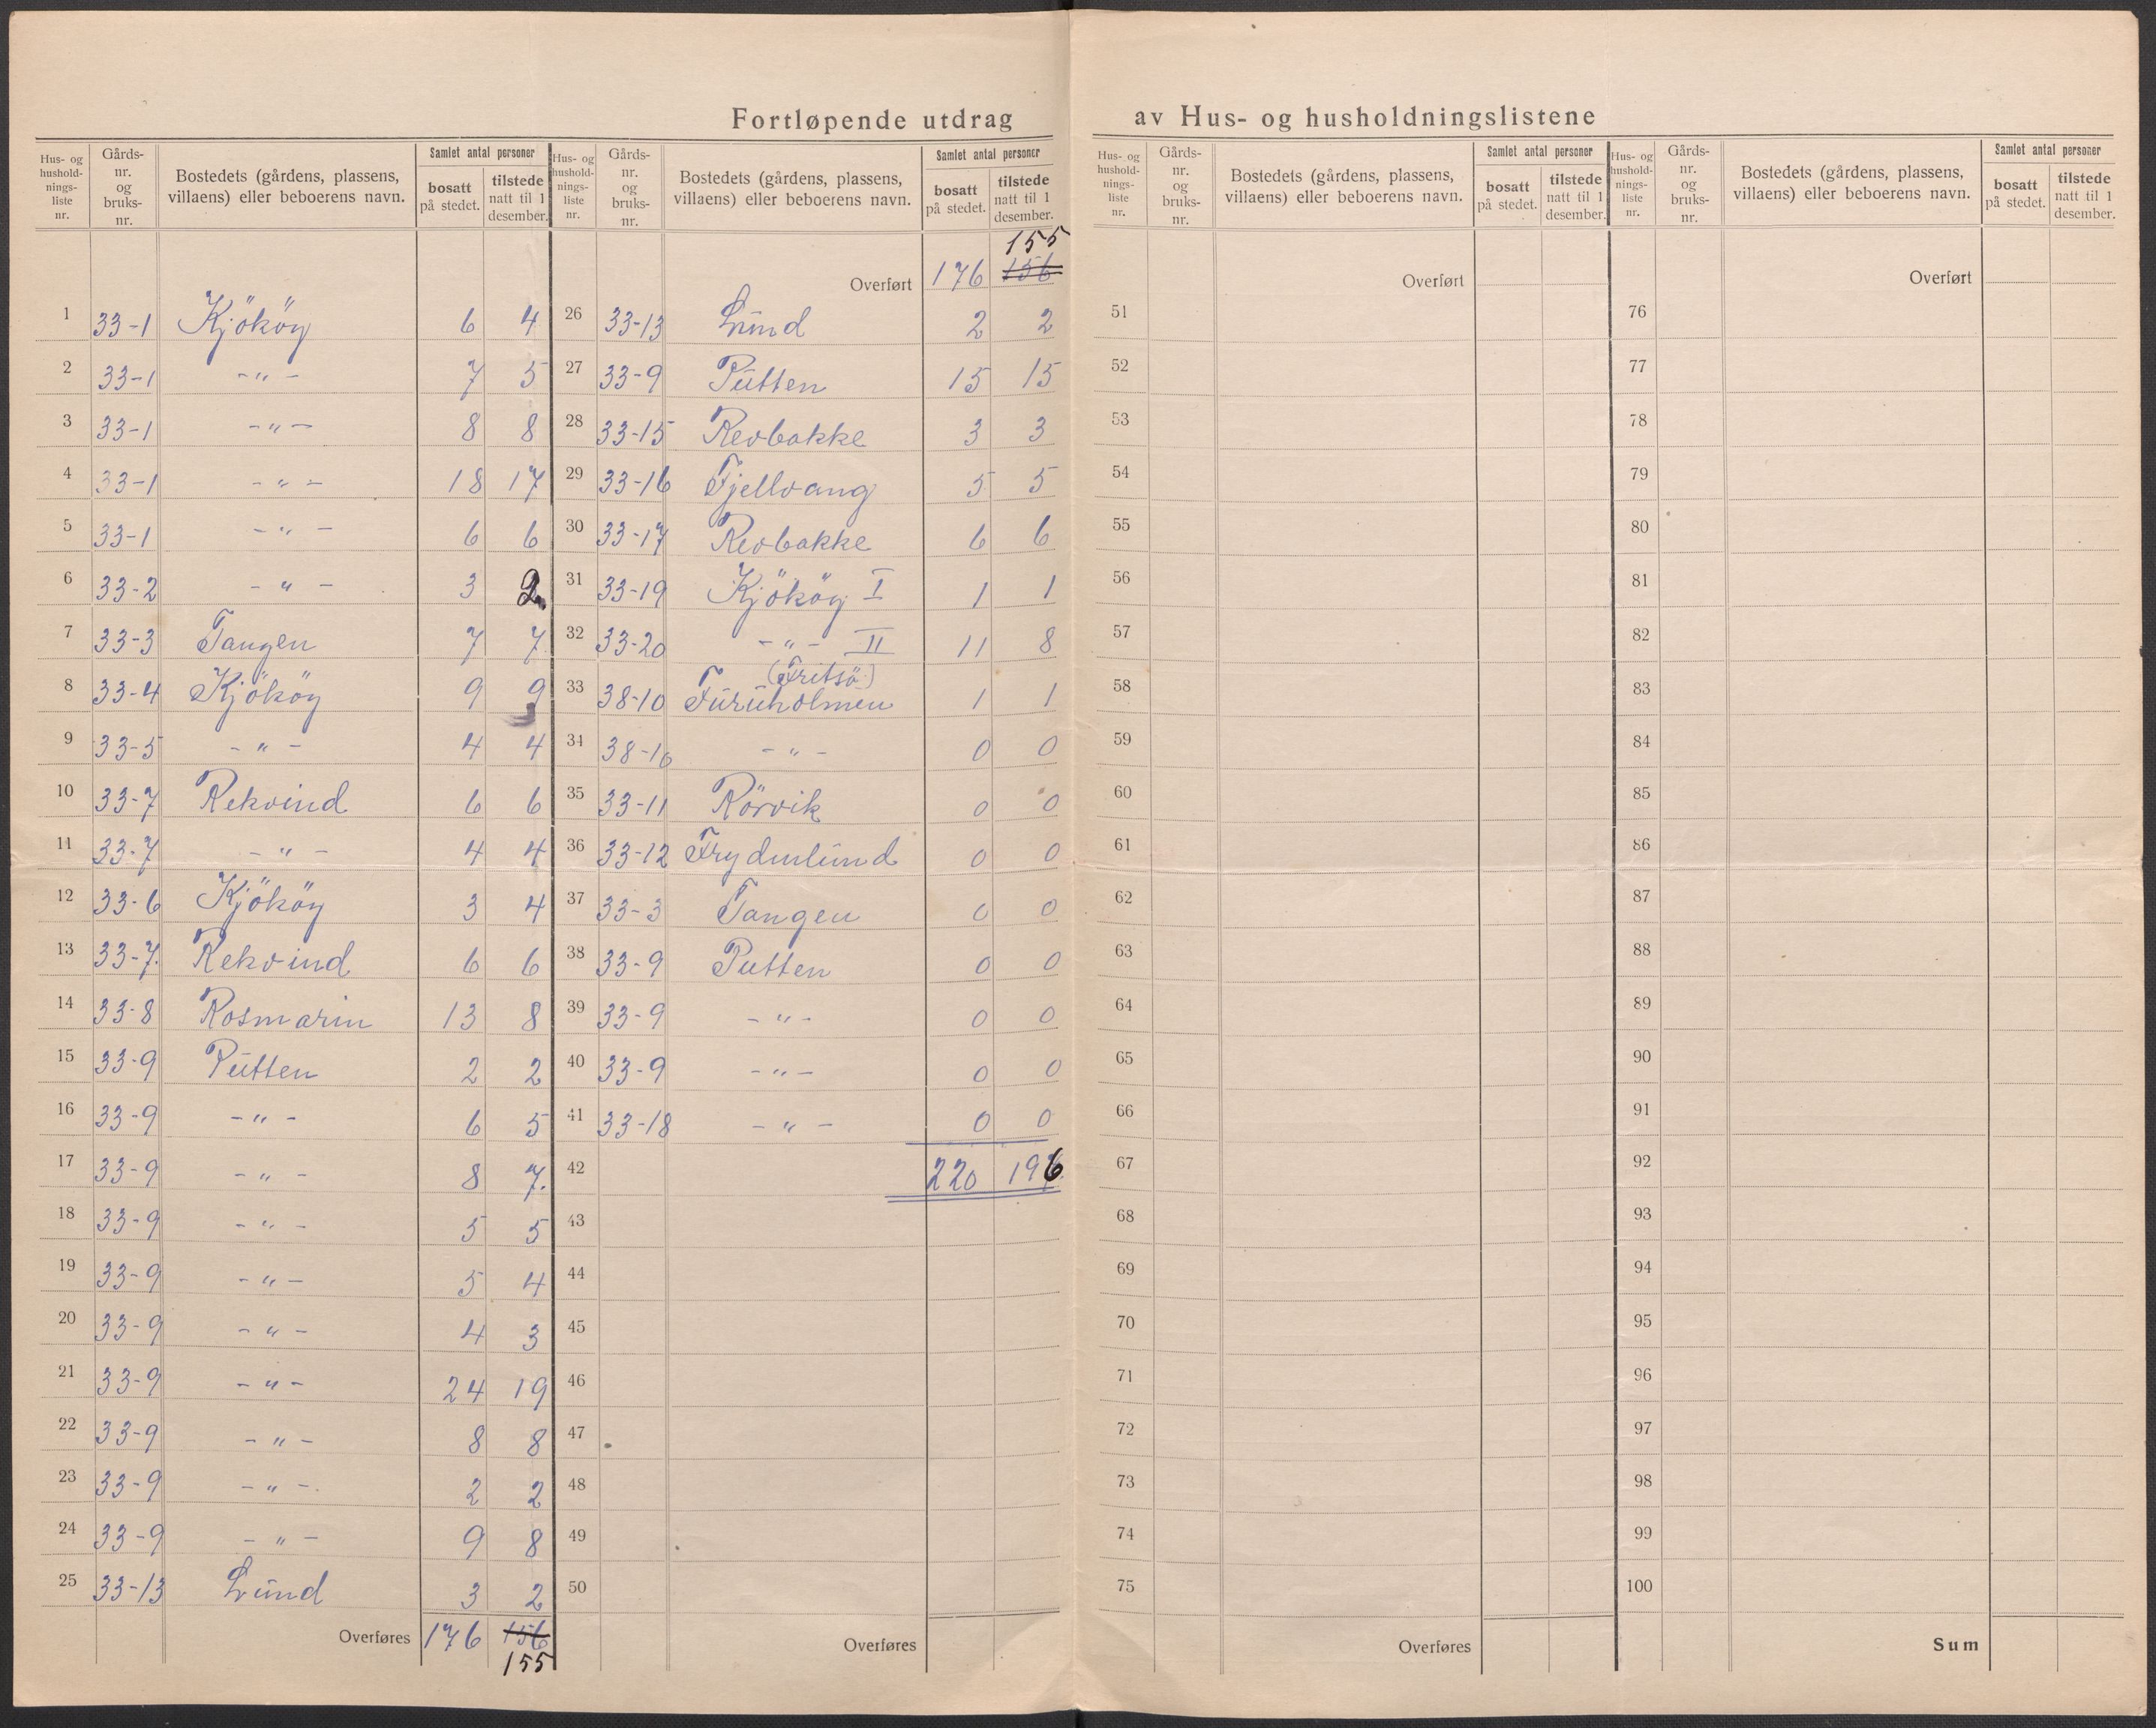 Fortløpende utdrag av Hus- og husholdningslistene
Hus- og hushold-nings-liste nr. | Gårds-nr. og bruks-nr. | Bostedets (gårdens, plassens, villaens) eller beboerens navn. | Samlet antal personer: bosatt på stedet. | tilstede natt til 1 desember.
1 33-1 Kjököy 6 4
2 33-1 -"- 7 5
3 33-1 -"- 8 8
4 33-1 -"- 18 17
5 33-1 -"- 6 6
6 33-2 -"- 3 2
7 33-3 Tangen 7 7
8 33-4 Kjököy 9 9
9 33-5 -"- 4 4
10 33-7 Rekvind 6 6
11 33-7 -"- 4 4
12 33-6 Kjököy 3 4
13 33-7. Rekvind 6 6
14 33-8 Rosmarin 13 8
15 33-9 Putten 2 2
16 33-9 -"- 6 5
17 33-9 -"- 8 7.
18 33-9 -"- 5 5
19 33-9 -"- 5 4
20 33-9 -"- 4 3
21 33-9 -"- 24 19
22 33-9 -"- 8 8
23 33-9 -"- 2 2
24 33-9 -"- 9 8
25 33-13 Lund 3 2
Overføres 176 156
155
Hus- og hushold-nings-liste nr. | Gårds-nr. og bruks-nr. | Bostedets (gårdens, plassens, villaens) eller beboerens navn. | Samlet antal personer: bosatt på stedet. | tilstede natt til 1 desember.
155
Overført 176 156
26 33-13 Lund 2 2
27 33-9 Putten 15 15
28 33-15 Revbakke 3 3
29 33-16 Fjellvang 5 5
30 33-17 Revbakke 6 6
31 33-19 Kjököy I 1 1
32 33-20 -"- II 11 8
(Fritsö)
33 38-10 Furuholmen 1 1
34 38-10 -"- 0 0
35 33-11 Rörvik 0 0
36 33-12 Frydenlund 0 0
37 33-3 Tangen 0 0
38 33-9 Putten 0 0
39 33-9 -"- 0 0
40 33-9 -"- 0 0
41 33-18 -"- 0 0
42 220 196
43
44
45
46
47
48
49
50
Overføres
Hus- og hushold-nings-liste nr. | Gårds-nr. og bruks-nr. | Bostedets (gårdens, plassens, villaens) eller beboerens navn. | Samlet antal personer: bosatt på stedet. | tilstede natt til 1 desember.
Overført
51
52
53
54
55
56
57
58
59
60
61
62
63
64
65
66
67
68
69
70
71
72
73
74
75
Overføres
Hus- og hushold-nings-liste nr. | Gårds-nr. og bruks-nr. | Bostedets (gårdens, plassens, villaens) eller beboerens navn. | Samlet antal personer: bosatt på stedet. | tilstede natt til 1 desember.
Overført
76
77
78
79
80
81
82
83
84
85
86
87
88
89
90
91
92
93
94
95
96
97
98
99
100
Sum